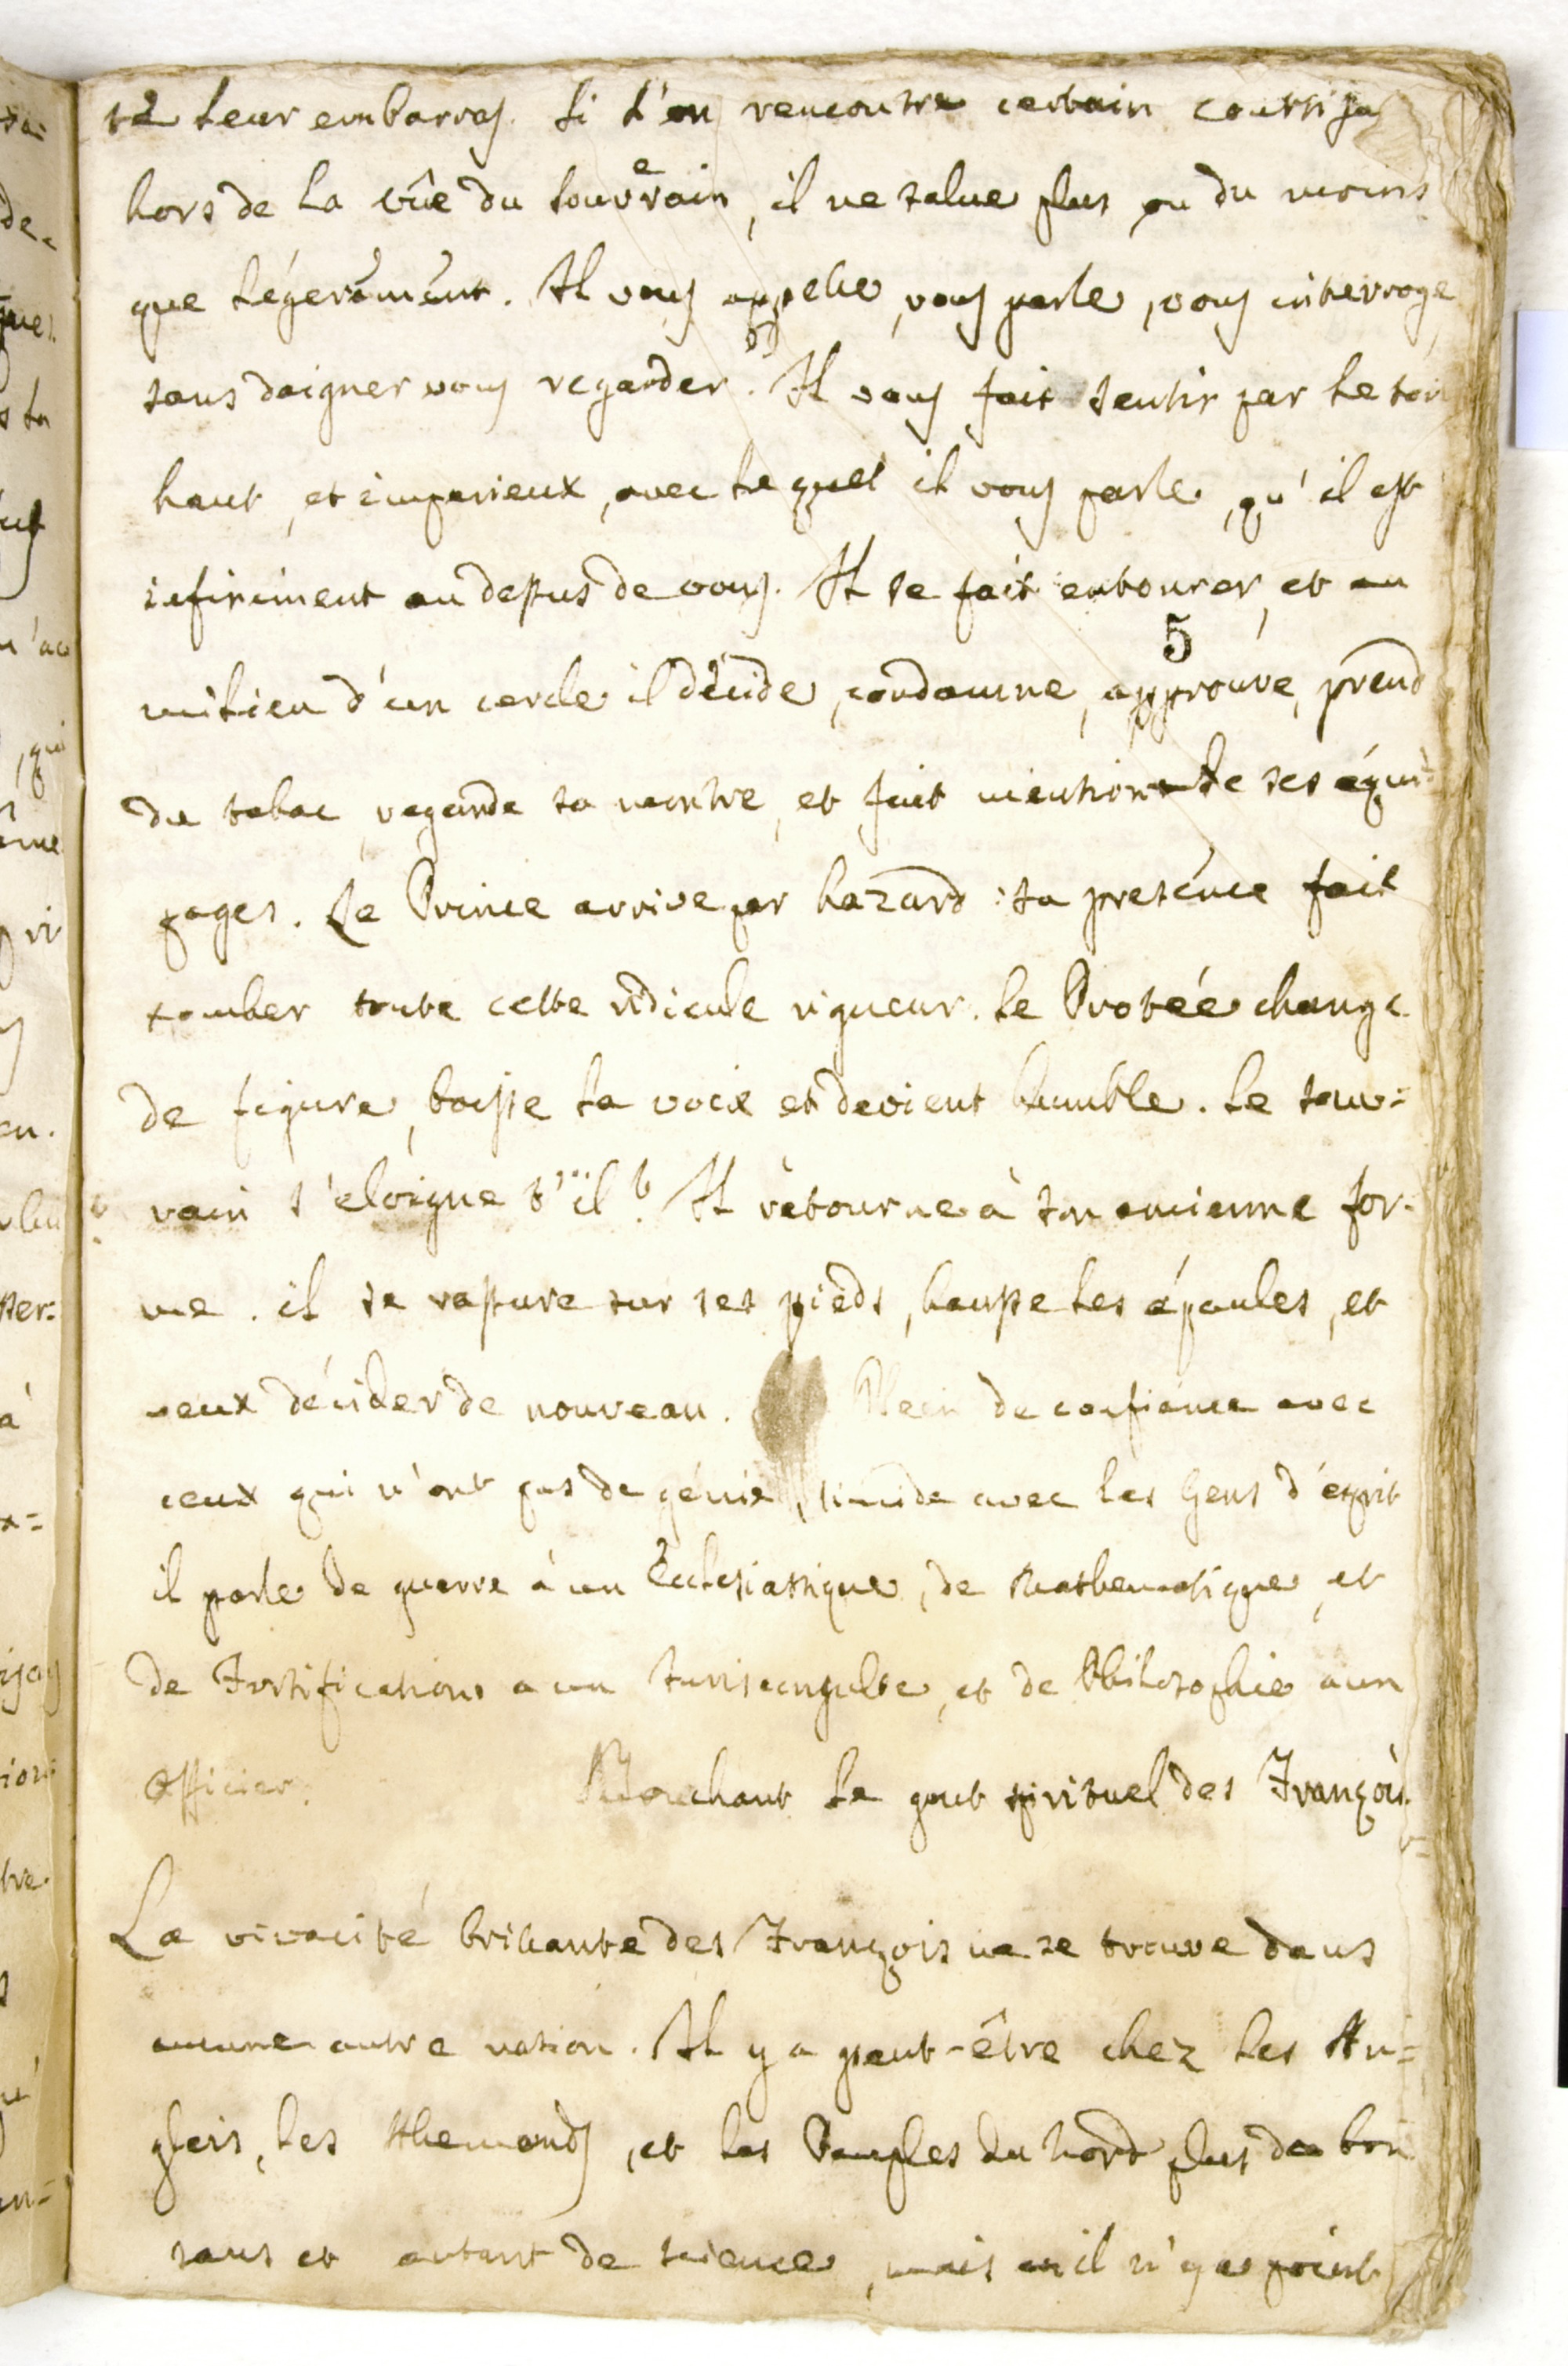 se leur embarras. Si l'on rencontre certain courtisan
hors de la vûe du souverain, il ne salue plus ou du moins
que légerement. Il vous appelle, vous parle, vous interroge
sans daigner vous regarder. Il vous fait sentir par le ton
haut, et imperieux, avec lequel il vous parle, qu'il est
infiniment au dessus de vous. Il se fait entourer, et au
5
milieu d'un cercle il décide, condamne, approuve, prend
du tabac, regarde sa montre, et fait mention de ses équi-
pages. Le Prince arrive par hazard: sa presence fait
tomber toute cette ridicule rigueur. le Protée change
de figure, baisse la voix et devient humble. Le souv=
rain s'eloigne t'il? Il retourne à son ancienne for-
me. il se rassure sur ses pieds, hausse les épaules, et
veux décider de nouveau. Plein de confiance avec
ceux qui n'ont pas de génie, timide avec les Gens d'esprit
il parle de guerre à un Ecclesiastique, de Mathematique, et
de Fortifications a un Jurisconsulte, et de Philosophie a un
Officier. Touchant le gout spirituel des François.
La vivacité brillante des François ne se trouve dans
aucune autre nation. Il y a peut-être chez les An=
glois, les Allemands, et les Peuples du Nord plus de bon
sans et autant de science, mais il n'y a point